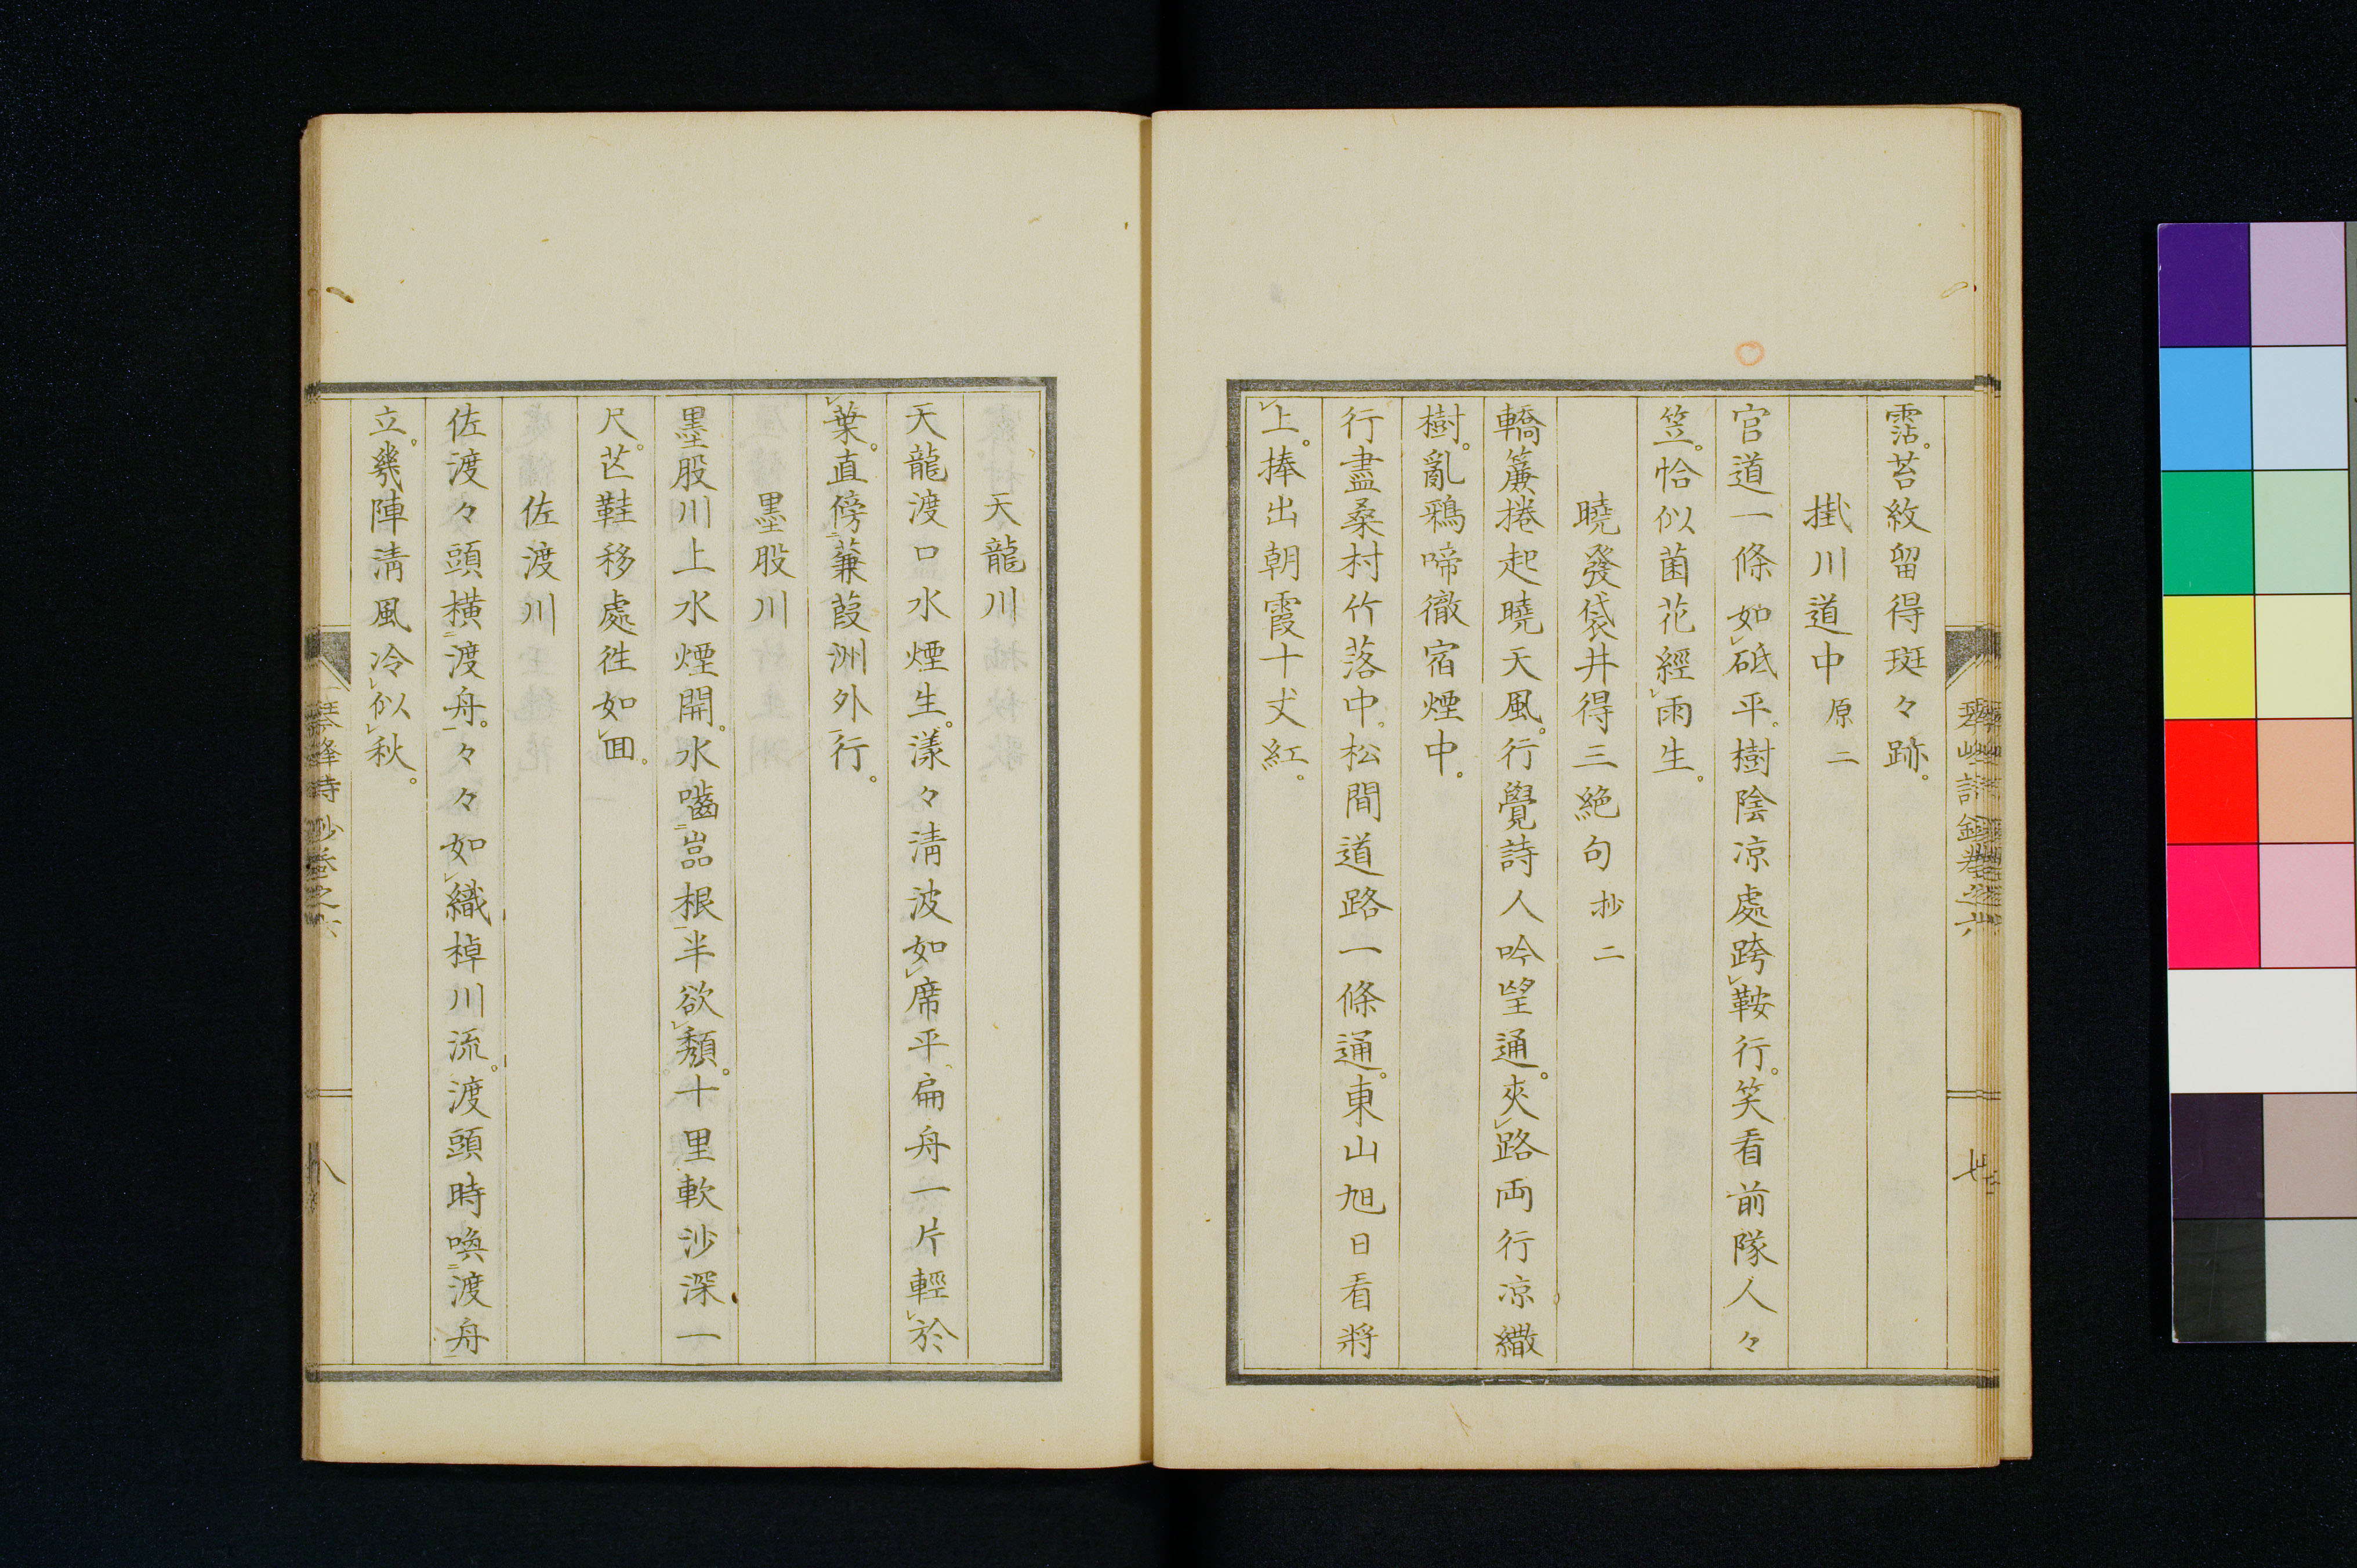 霑。苔紋留得斑々跡。
掛川道中 原二
官道一條如砥平。樹陰凉處跨鞍行。笑看前隊人々
笠。恰似菌花經雨生。
曉發袋井得三絶句 抄二
轎簾捲起曉天風。行覺詩人吟望通。夾路両行凉繖
樹。亂鴉啼徹宿煙中。
行盡桑村竹落中。松間道路一條通。東山旭日看將
上。捧出朝霞十丈紅。
天龍川
天龍渡口水煙生。漾々淸波如席平。扁舟一片輕於
葉。直傍蒹葭洲外行。
墨股川
墨股川上水煙開。水嚙嵓根半欲頽。十里軟沙深一
尺。芒鞋移處徃如回。
佐渡川
佐渡々頭橫渡舟。々々如織棹川流。渡頭時喚渡舟
立。幾陣淸風冷似秋。